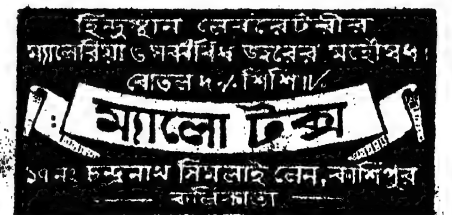 হিন্দুস্থান লেবরেটরীর
ম্যালেরিয়া ও সর্ব্ববিধ জ্বরের মহৌষধ।
বোতল ৸৹ শিশি॥৹
ম্যালো টক্স
১৭নং চন্দ্রনাথ সিমলাই লেন, কাশিপুর
কলিকাতা